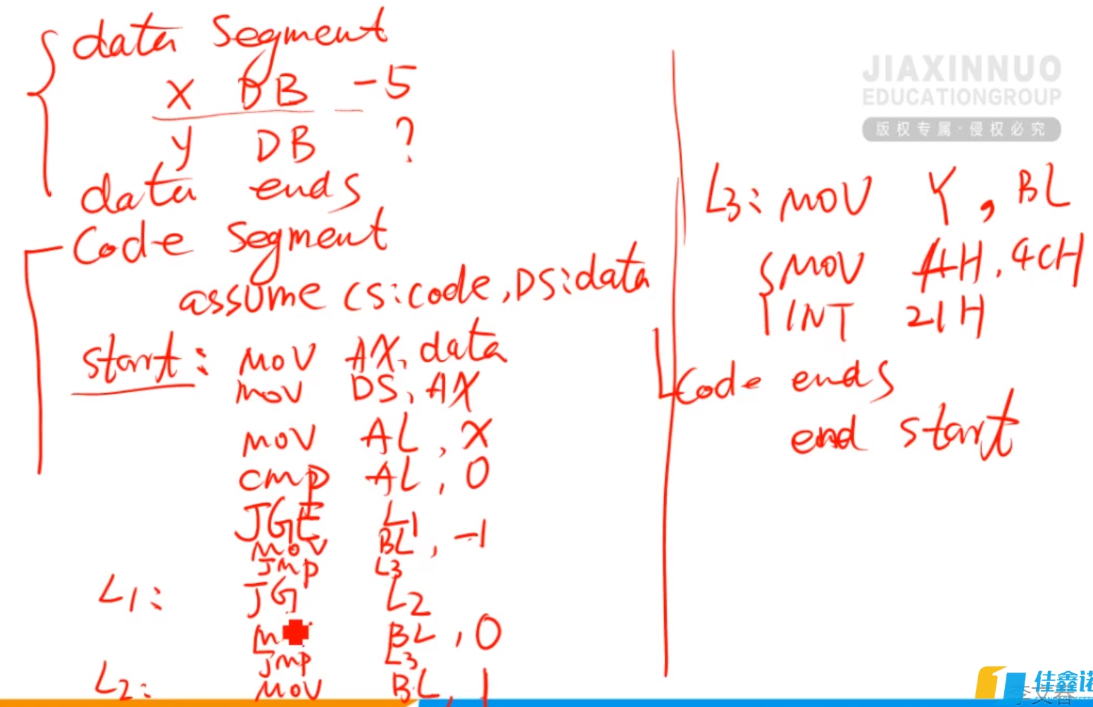 data segment
X DB -5
Y DB ?
data ends
Code segment
assume CS:code, DS:data
start: MOV AX, data
MOV DS, AX
MOV AL, X
CMP AL, 0
JGE L1
MOV BL, -1
JMP L3
L1: JG L2
BL, 0
JMP L3
L2: MOV BL, 1
L3: MOV Y, BL
MOV AH, 4CH
INT 21H
Code ends
end start
JIAXINNUO
EDUCATIONGROUP
版权专属·侵权必究
佳鑫诺